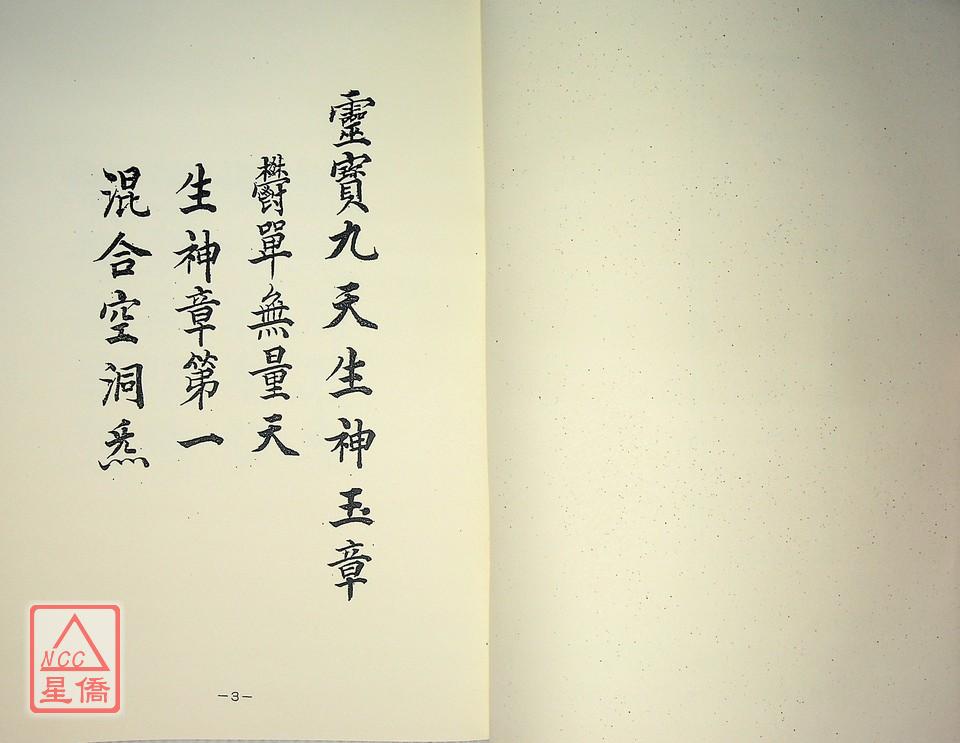 靈寶九天生神玉章
鬱單無量天
生神章第一
混合空洞炁
NCC
星僑
-3-